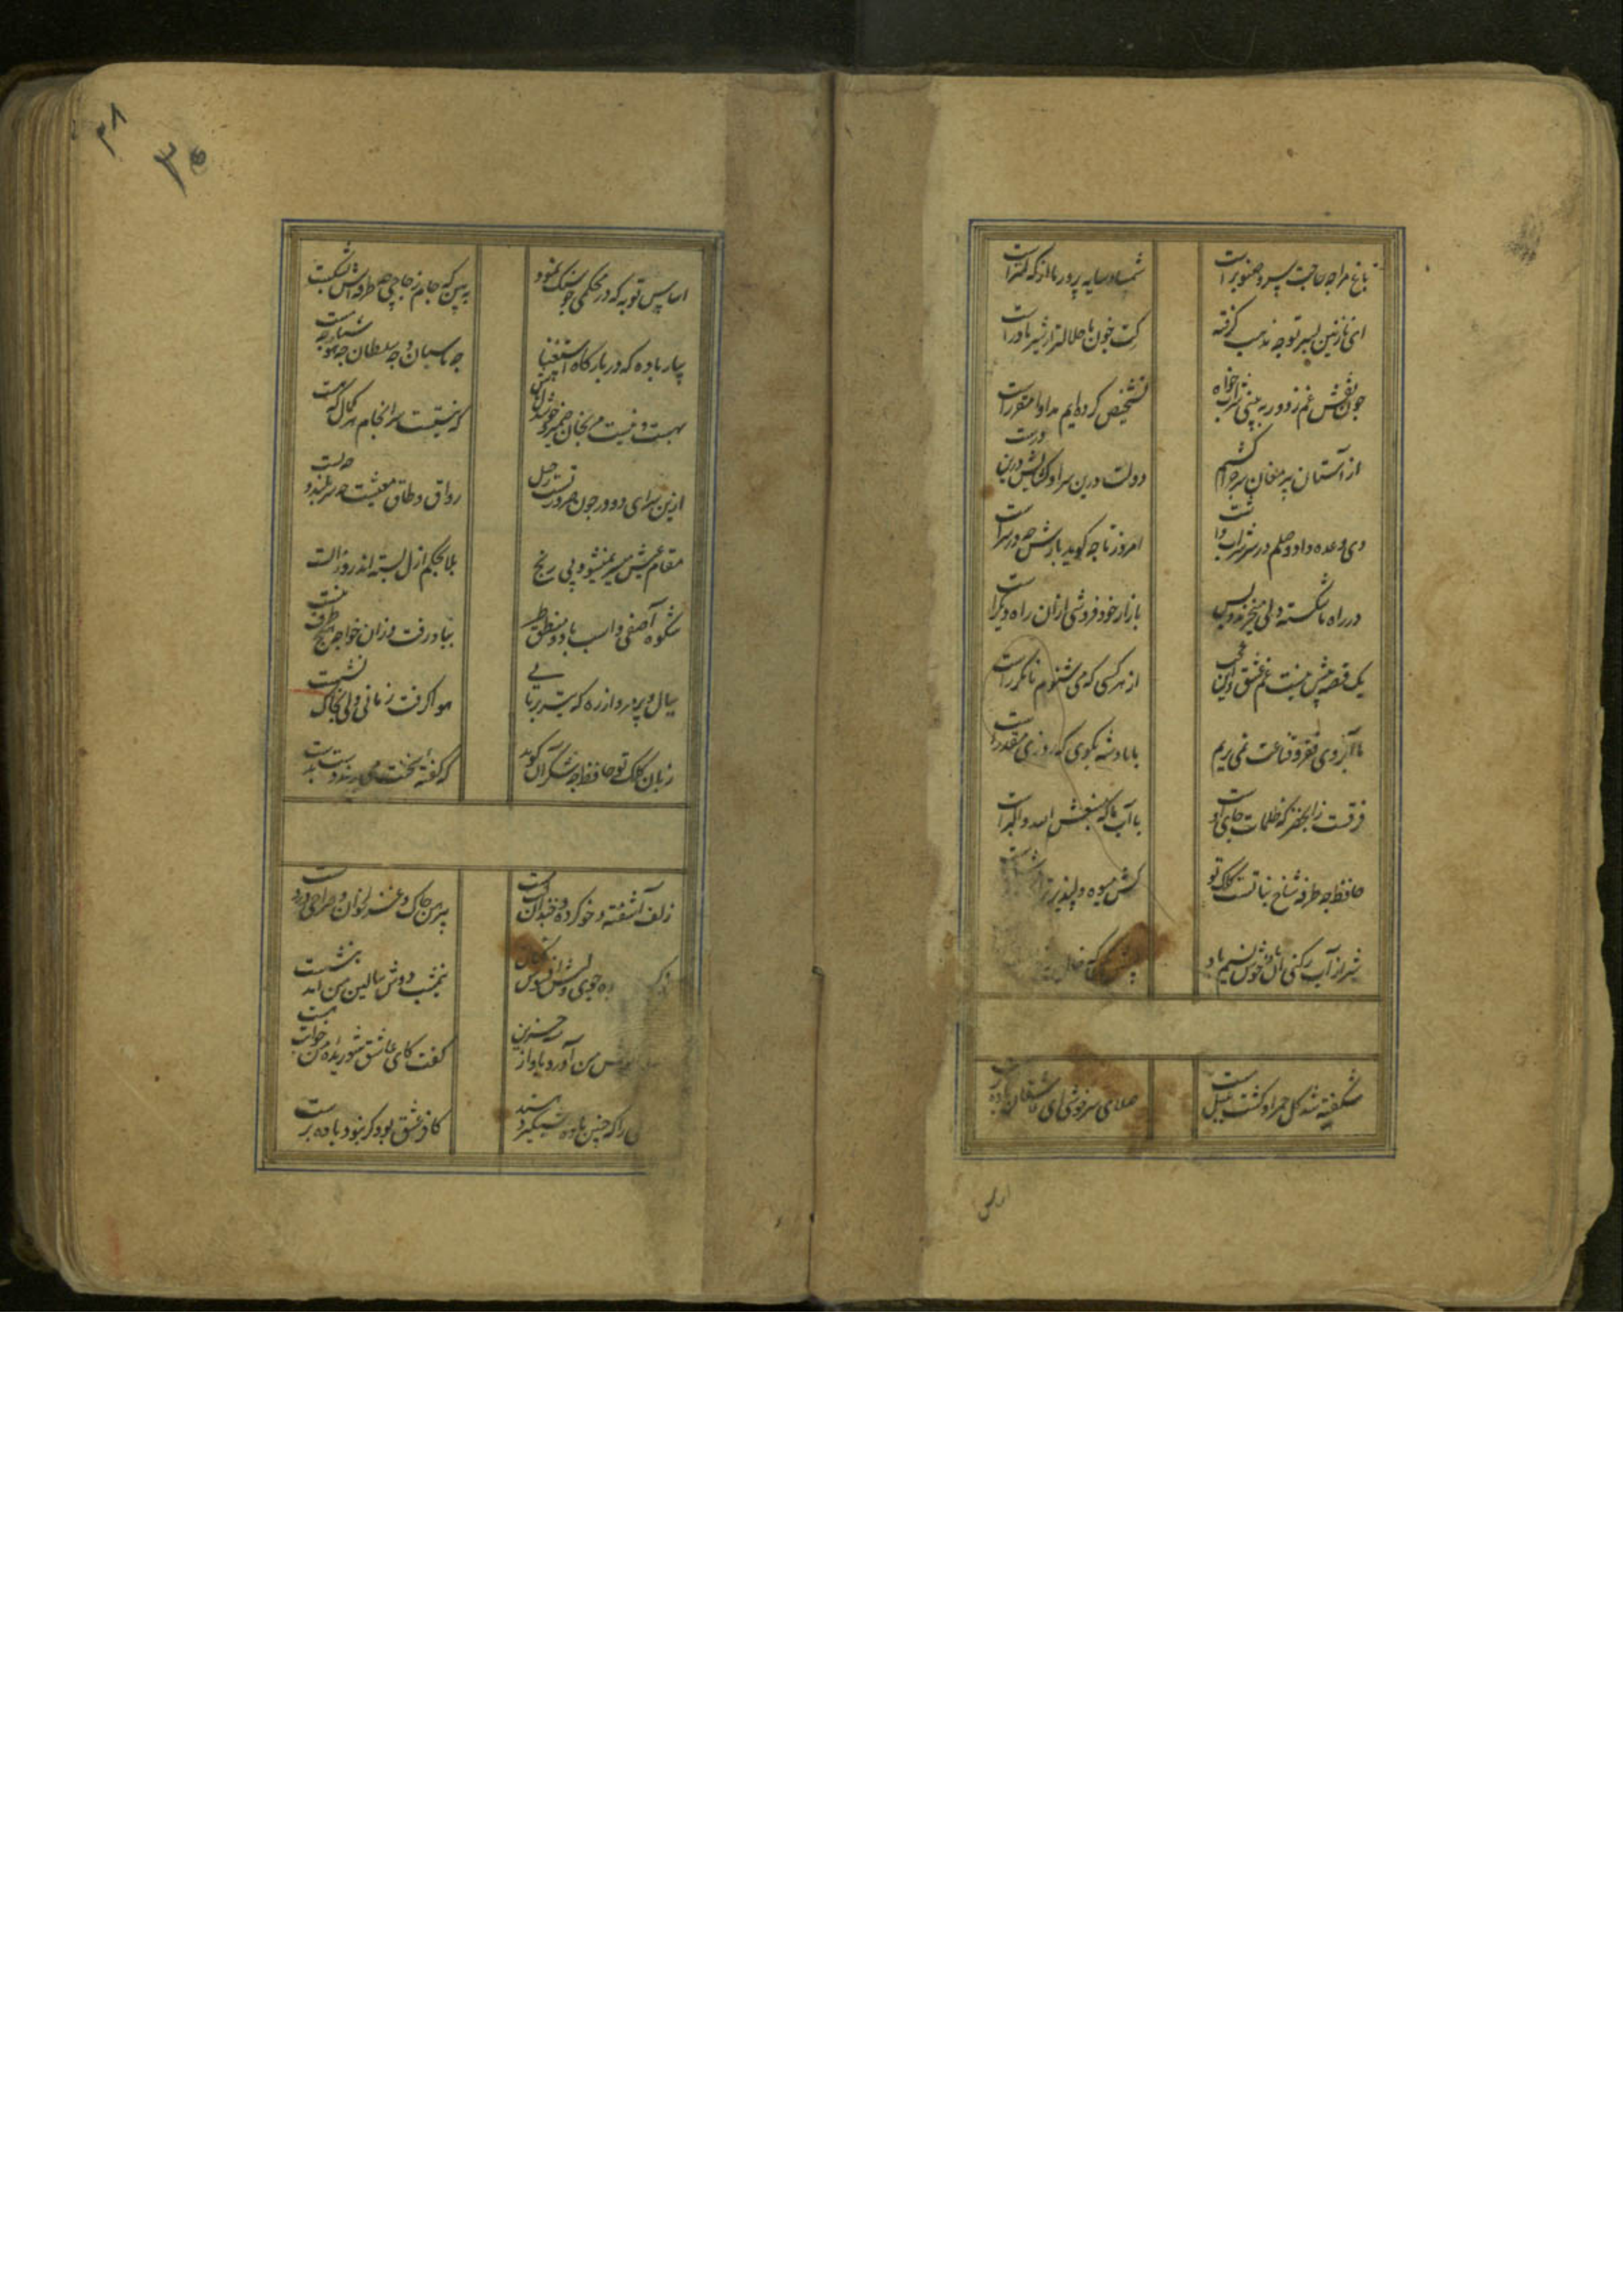 باغ مرا چه حاجت سرو و صنوبر است
شمشاد سایه پرور ما از که کمتر است
ای نازنین پسر تو چه مذهب گرفته
کت خون ما حلالتر از شیر مادر است
چون نقش غم ز دور به بینی شراب خواه
تشخیص کرده‌ایم مداوا مقرر است
از آستان پیر مغان سر چرا کشم
دولت درین سرا و کشایش درین درست
دی وعده داد وصلم و در سر شراب داشت
امروز تا چه کوید بازش چه در سر است
در راه ما شکسته دلی میخرند و بس
بازار خود فروشی ازان راه دیکر است
یک قصه پیش نیست غم عشق وین عجب
از هر کسی که می شنوم نامکرر است
ما آبروی فقر و قناعت نمی بریم
با پادشه بکوی که روزی مقدر است
فرقست ز آب خضر که ظلمات جای اوست
با آب ما که منبعش الله و اکبر است
حافظ چه طرفه شاخ نباتست کلک تو
کش میوه دلپذیرتر
شیراز آب رکنی و آن باد خوش نسیم
شکفته شد کل حمرا و کشت بلبل مست
صلای سرخوشی ای عاشقان باده پرست
اساس
۳۸
۳۵
اساس توبه که در محکمی چو سنک نمود
ببین که جام زجاجی چه طرفه‌اش بشکست
بیار باده که در بارکاه استغنا
چه پاسبان و چه سلطان چه هوشیار چه مست
بهست و نیست مرنجان ضمیر و خوش دل باش
که نیستیست سرانجام هر کمال که هست
ازین سرای دو در چون ضرورتست رحیل
رواق و طاق معیشت چه سربلند و چه پست
مقام عیش میسر نمیشود بی رنج
بلا بحکم ازل بسته‌اند روز الست
شکوه آصفی و اسب باد و منطق طیر
بباد رفت و زان خواجه هیچ طرف نبست
ببال و پر مرو از ره که تیر پرتابی
هوا کرفت زمانی ولی بخاک نشست
زبان کلک تو حافظ چه شکر آن کوید
که کفته سخنت می برند دست بدست
زلف آشفته و خوی کرده و خندان لب و مست
پیرهن چاک و غزل خوان و صراحی در دست
جوی و لبش افسوس کنان
نیمشب دوش ببالین من آمد بنشست
من آورد بآواز حزین
کفت کای عاشق شوریده من خوابت هست
را که چنین باده شبکیر دهند
کافر عشق بود کر نبود باده پرست